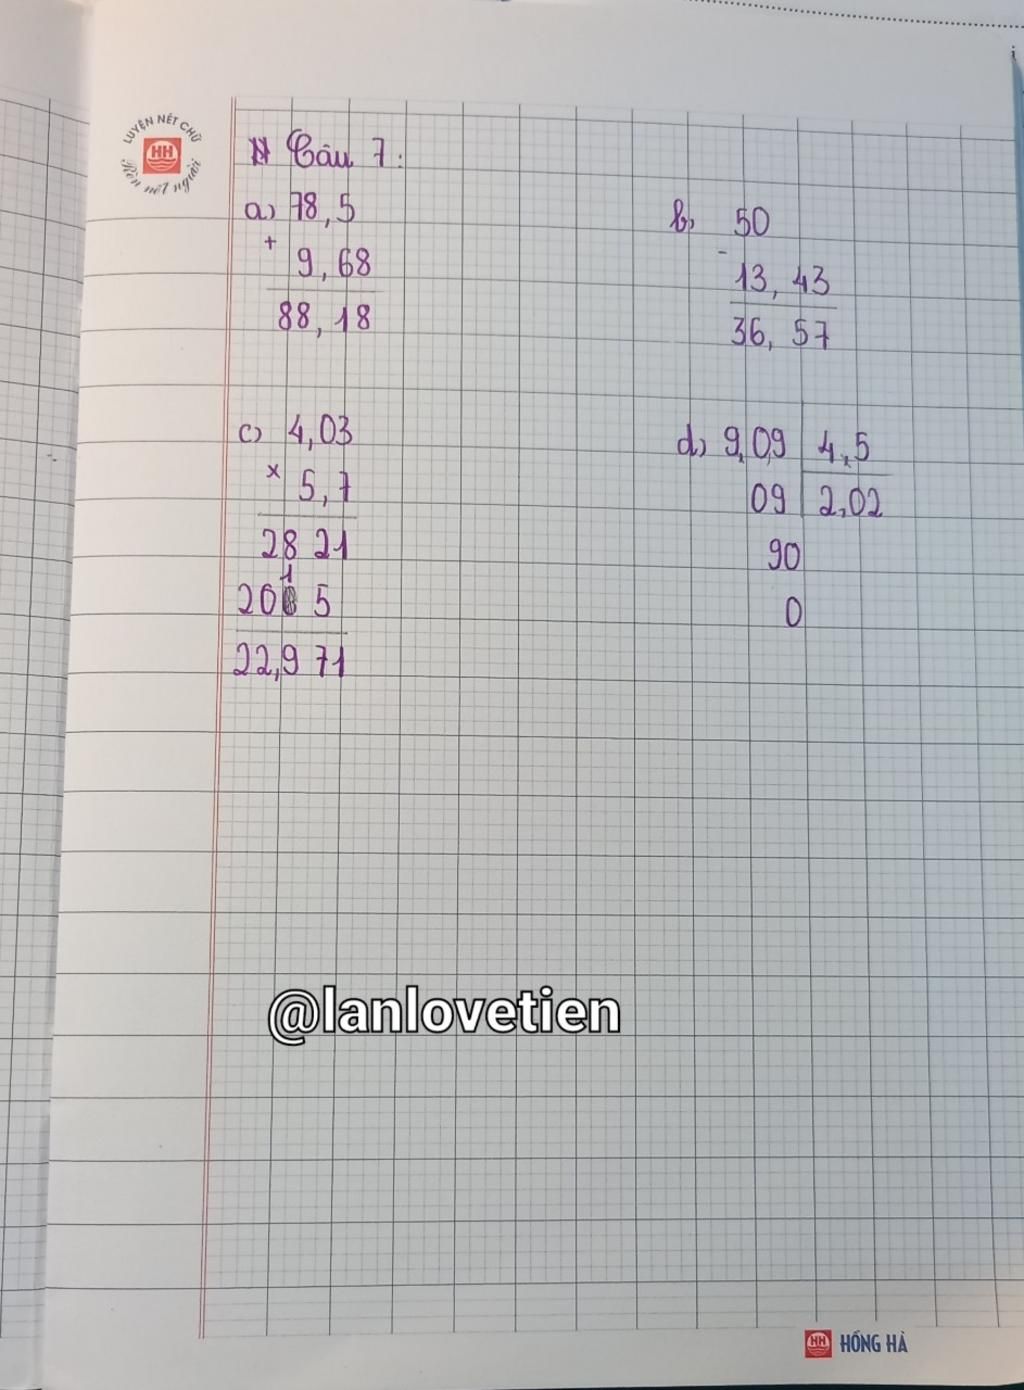 LUYỆN NÉT CHỮ
HH
Rèn nết người
Câu 7:
a) 78,5
+
9,68
88,18
b) 50
-
13,43
36,57
c) 4,03
x
5,7
2821
1
20 5
22,971
d) 9,09 4,5
09 2,02
90
0
@lanlovetien
HH HỒNG HÀ